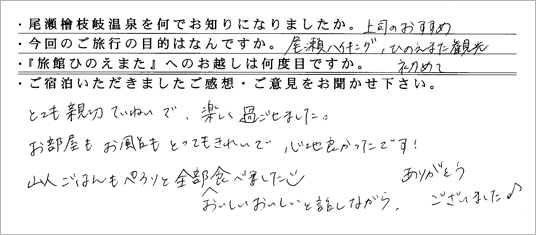 ・尾瀬檜枝岐温泉を何でお知りになりましたか。 上司のおすすめ
・今回のご旅行の目的はなんですか。 尾瀬ハイキング、ひのえまた観光
・『旅館ひのえまた』へのお越しは何度目ですか。 初めて
・ご宿泊いただきましたご感想・ご意見をお聞かせ下さい。
とても親切ていねいで、楽しく過ごせました。
お部屋もお風呂もとってもきれいで、心地良かったです！
山人ごはんもぺろりと全部食べました
おいしいおいしいと話しながら。
ありがとう
ございました♪